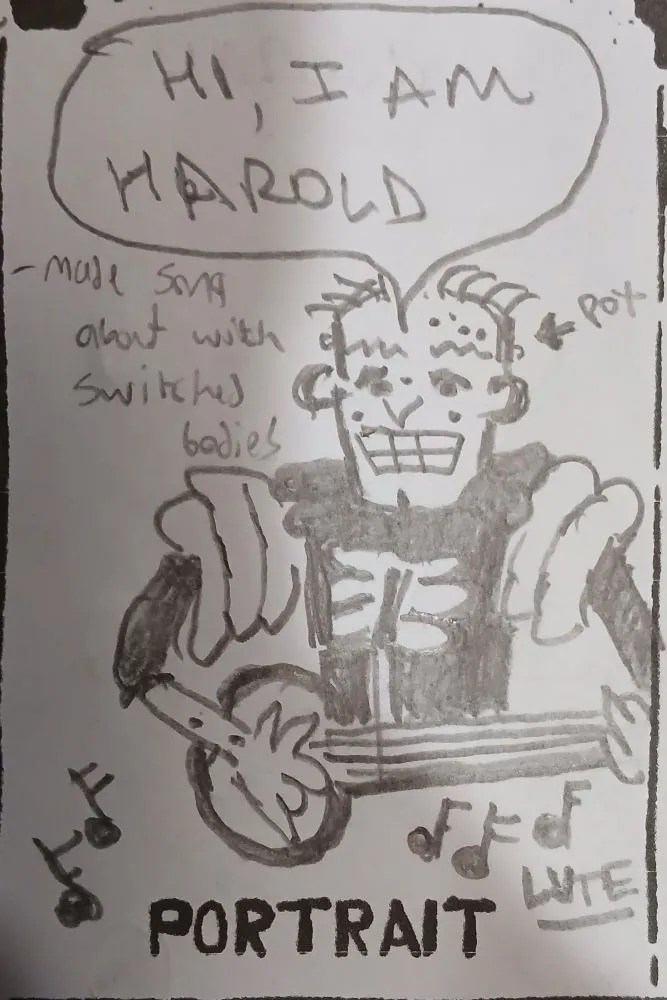 HI, I AM
HAROLD
- made song
about witch
switches
bodies
pot
LUTE
PORTRAIT